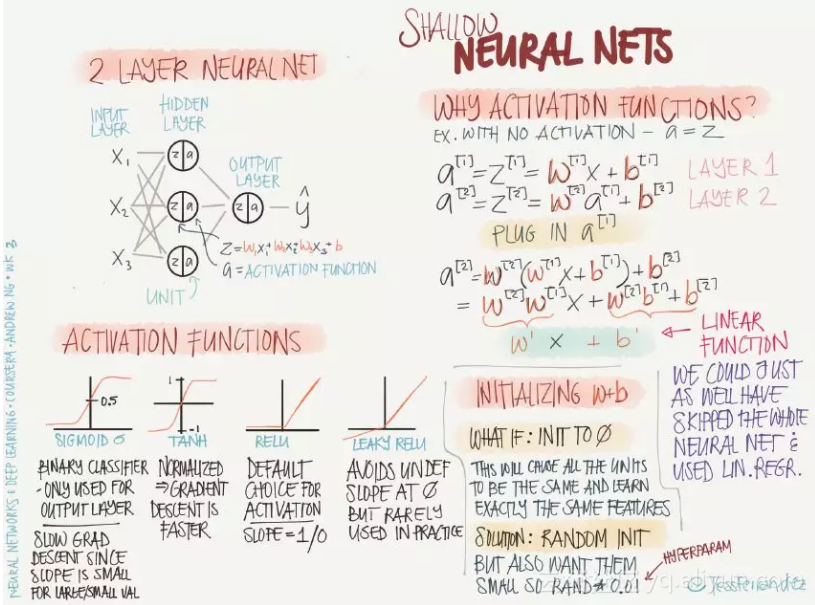 SHALLOW
NEURAL NETS
2 LAYER NEURAL NET
INPUT
LAYER
HIDDEN
LAYER
OUTPUT
LAYER
X₁
X₂
X₃
z a
z a
z a
z a
ŷ
Z = W₁X₁ + W₂X₂ + W₃X₃ + b
a = ACTIVATION FUNCTION
UNIT
WHY ACTIVATION FUNCTIONS?
EX. WITH NO ACTIVATION - a = Z
a[1] = Z[1] = W[1]X + b[1] LAYER 1
a[2] = Z[2] = W[2]a[1] + b[2] LAYER 2
PLUG IN a[1]
a[2] = W[2](W[1]X + b[1]) + b[2]
= W[2]W[1]X + W[2]b[1] + b[2]
W' X + b'
LINEAR
FUNCTION
WE COULD JUST
AS WELL HAVE
SKIPPED THE WHOLE
NEURAL NET &
USED LIN. REGR.
ACTIVATION FUNCTIONS
0.5
SIGMOID σ
BINARY CLASSIFIER
- ONLY USED FOR
OUTPUT LAYER
SLOW GRAD
DESCENT SINCE
SLOPE IS SMALL
FOR LARGE/SMALL VAL
1
-1
TANH
NORMALIZED
⇒ GRADIENT
DESCENT IS
FASTER
RELU
DEFAULT
CHOICE FOR
ACTIVATION
SLOPE = 1/0
LEAKY RELU
AVOIDS UNDEF
SLOPE AT 0
BUT RARELY
USED IN PRACTICE
INITIALIZING W+b
WHAT IF: INIT TO 0
THIS WILL CAUSE ALL THE UNITS
TO BE THE SAME AND LEARN
EXACTLY THE SAME FEATURES
SOLUTION: RANDOM INIT
BUT ALSO WANT THEM
SMALL SO RAND * 0.01
HYPERPARAM
NEURAL NETWORKS & DEEP LEARNING · COURSERA · ANDREW NG · WK 3